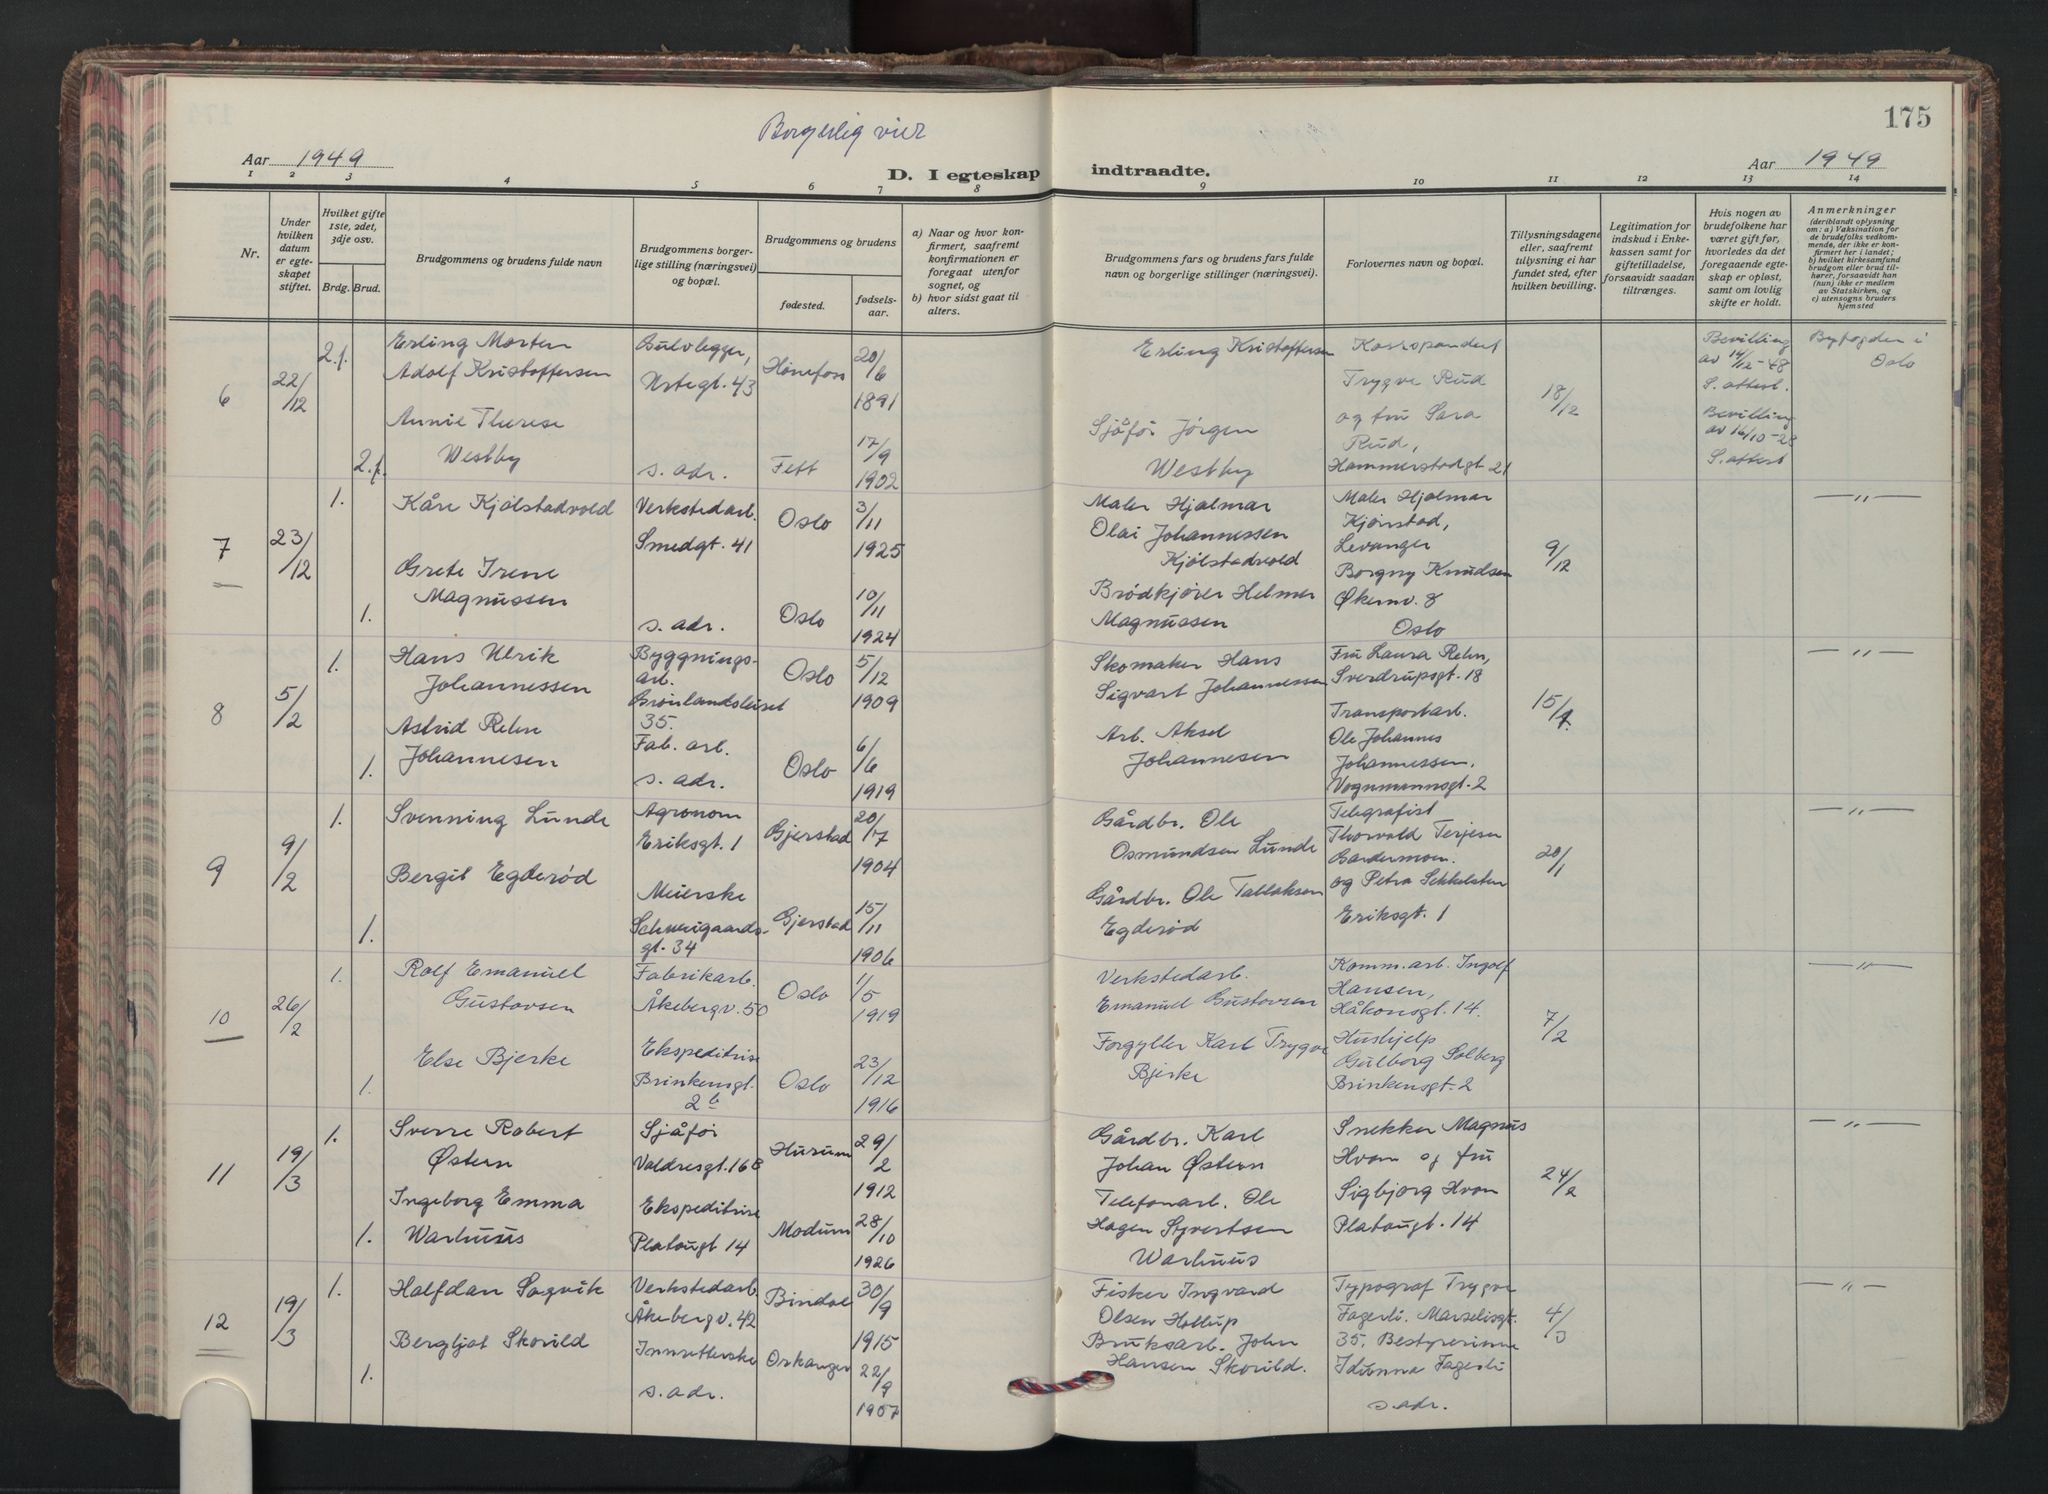 Borgerlig viet
175
Aar 1949
D. I egteskap indtraadte.
Aar 1949
1 2 3 4 5 6 7 8 9 10 11 12 13 14
Nr.
Under hvilken datum er egteskapet stiftet.
Hvilket gifte 1ste, 2det, 3dje osv.
Brdg. Brud.
Brudgommens og brudens fulde navn
Brudgommens borgerlige stilling (næringsvei) og bopæl.
Brudgommens og brudens
fødested. fødselsaar.
a) Naar og hvor konfirmert, saafremt konfirmationen er foregaat utenfor sognet, og
b) hvor sidst gaat til alters.
Brudgommens fars og brudens fars fulde navn og borgerlige stillinger (næringsvei).
Forlovernes navn og bopæl.
Tillysningsdagene eller, saafremt tillysning ei har fundet sted, efter hvilken bevilling.
Legitimation for indskud i Enkekassen samt for giftetilladelse, forsaavidt saadan tiltrænges.
Hvis nogen av brudefolkene har været gift før, hvorledes da det foregaaende egteskap er opløst, samt om lovlig skifte er holdt.
Anmerkninger
(deriblandt oplysning om: a) Vaksination for de brudefolks vedkommende, der ikke er konfirmert her i landet; b) hvilket kirkesamfund brudgom eller brud tilhører, forsaavidt han (hun) ikke er medlem av Statskirken, og c) utensogns bruders hjemsted
6
22/12
2.f.
Erling Morten
Adolf Kristoffersen
Gulvlegger,
Urtegt. 43
Hønefoss
20/6
1891
Erling Kristoffersen
Korrespondent
Trygve Rud
og fru Sara
Rud,
Hammerstadgt 21
18/12
Bevilling
av 14/12-48
S. attest.
Byfogden i
Oslo
2.f.
Annie Therese
Westby
s. adr.
Fett
17/9
1902
Sjåfør Jørgen
Westby
Bevilling
av 16/10-28
S. attest
7
23/12
1.
Kåre Kjølstadvold
Verkstedarb.
Smedgt. 41
Oslo
3/11
1925
Maler Hjalmar
Olai Johannessen
Kjølstadvold
Maler Hjalmar
Kjønstad,
Levanger
Borgny Knudsen
Økernv. 8
Oslo
9/12
— " —
1.
Grete Irene
Magnussen
s. adr.
Oslo
10/11
1924
Brødkjører Helmer
Magnussen
8
5/2
1.
Hans Ulrik
Johannessen
Byggnings-
arb.
Grønlandsleiret
35.
Oslo
5/12
1909
Skomaker Hans
Sigvart Johannessen
Fru Laura Rehn,
Sverdrupsgt. 18
Transportarb.
Ole Johannes
Johannessen.
Vognmannsgt. 2
15/1
— " —
1.
Astrid Rehn
Johannesen
Fab. arb.
s. adr.
Oslo
6/6
1919
Arb. Aksel
Johannesen
9
9/2
1.
Svenning Lunde
Agronom
Eriksgt. 1
Gjerstad
20/7
1904
Gårdbr. Ole
Osmundsen Lunde
Telegrafist
Thorvald Terjesen
Gardermoen.
og Petra Sekkelsten
Eriksgt. 1
20/1
— " —
1.
Bergit Egderød
Meierske
Schweigaards-
gt. 34
Gjerstad
15/11
1906
Gårdbr. Ole Tallaksen
Egderød
10
26/2
1.
Rolf Emanuel
Gustavsen
Fabrikarb.
Åkebergv. 50
Oslo
1/5
1919
Verkstedarb.
Emanuel Gustavsen
Komm. arb. Ingolf
Hansen,
Håkonsgt. 14.
Hushjelp
Gulborg Solberg
Brinkensgt. 2
7/2
— " —
1.
Else Bjerke
Ekspeditrise
Brinkensgt.
2 b
Oslo
23/12
1916
Forgyller Karl Trygve
Bjerke
11
19/3
1.
Sverre Robert
Østern
Sjåfør
Valdresgt. 16B
Hurum
29/2
1912
Gårdbr. Karl
Johan Østern
Snekker Magnus
Hvam og fru
Sigbjørg Hvam
Platougt. 14
24/2
— " —
1.
Ingeborg Emma
Warhuus
Ekspeditrise
Platougt 14
Modum
28/10
1926
Telefonarb. Ole
Hagen Syvertsen
Warhuus
12
19/3
1.
Halfdan Sagvik
Verkstedarb.
Åkebergv. 42
Bindal
30/9
1915
Fisker Ingvard
Olsen Hollup
Typograf Trygve
Fagerli. Marselisgt.
35. Bestyrerinne
Idunna Fagerli
s. adr.
4/3
— " —
1.
Bergljot Skorild
Innsetterske
s. adr.
Orkanger
22/9
1907
Bruksarb. John
Hansen Skorild.